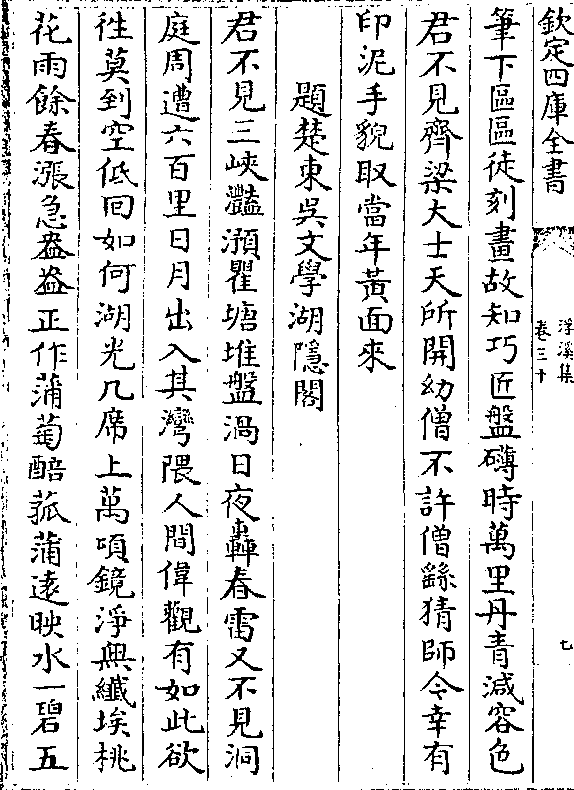 欽定四庫全書
浮溪集
卷三十
七
筆下區區徒刻畫故知巧匠盤礴時萬里丹青減容色
君不見齊梁大士天所開幼僧不許僧繇猜師今幸有
印泥手貌取當年黃面來
題楚東吳文學湖隱閣
君不見三峽灩澦瞿塘堆盤渦日夜轟春雷又不見洞
庭周遭六百里日月出入其灣隈人間偉觀有如此欲
徃莫到空低囘如何湖光几席上萬項鏡淨無纖埃桃
花雨餘春漲急盎盎正作蒲萄醅菰蒲遠映水一碧五